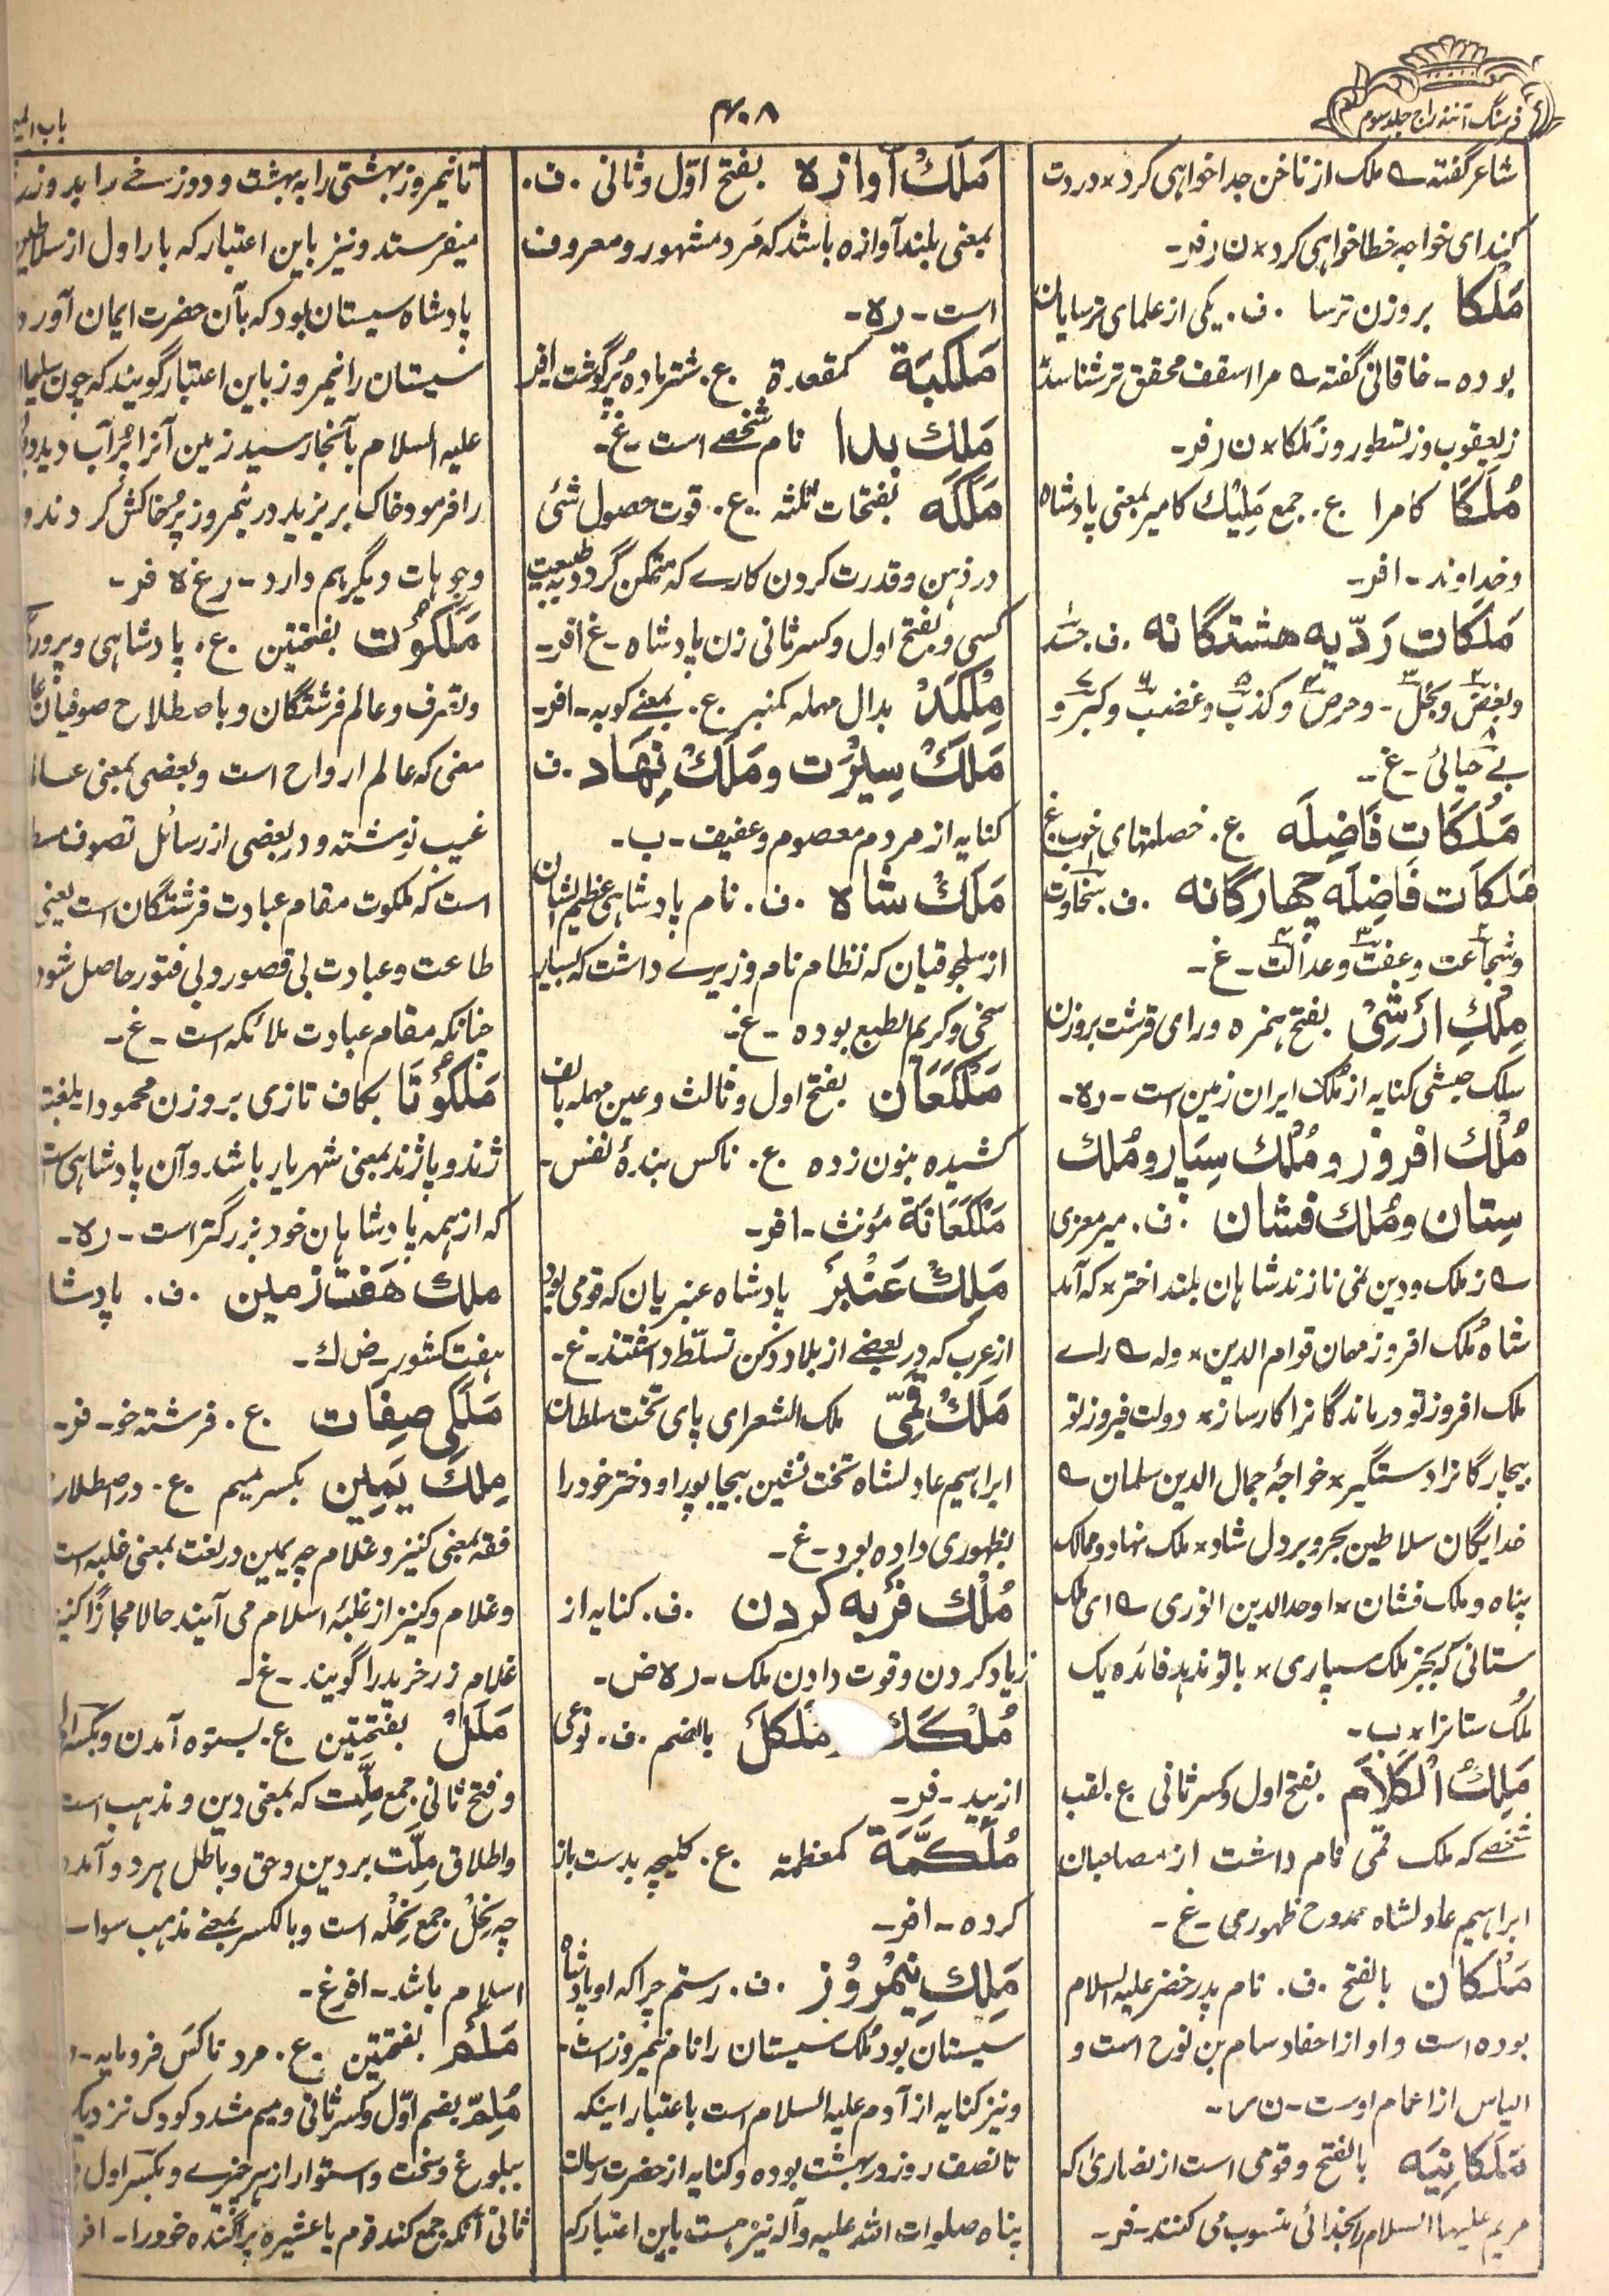 فرهنگ آنندراج جلد سوم
۴۰۸
باب المیم
شاعر گفته ؎ ملک از ناخن جدا خواهی کرد × دردت
کند ای خواجه خطا خواهی کرد × ن ر فر۔
مَلْکا بروزن ترسا ۰ف۰ یکی از علمای ترسایان
بوده۔ خاقانی گفته ؎ مرا اسقف محقق تر شناسد
ز یعقوب و ز نسطور و ز ملکا × ن ر فر۔
مُلَکَا کامرا ۰ع۰ جمع مَلِیْك کامیر بمعنی پادشاه
و خداوند۔ افر۔
مَلَکَات رَدّیه هشتگانه ۰ف۰ حسد
و بغض و بخل۔ و حرص و کذب و غضب و کبر و
بے حیائی۔غ۔
مَلَکَاتِ فَاضِلَه ۰ع۰ خصلتهای خوب۔غ
مَلَکَات فَاضِلَه چهارگانه ۰ف۰ سخاوت
و شجاعت و عفت و عدالت۔غ۔
مِلْكِ ارْشِیْ بفتح همزه و رای قرشت بروزن
سلک حبشی کنایه از مُلک ایران زمین است۔ره۔
مُلْك افروز و مُلْك سِپَار و مُلك
سِتان و مُلك فشان ۰ف۰ میر معزی
؎ ز ملک و دین نمی نازند شاهان بلند اختر × که آمد
شاه مُلک افروز مهمان قوام الدین × وله ؎ راے
ملک افروز تو درماندگانرا کارساز × دولت فیروز تو
بیچارگانرا دستگیر × خواجۀ جمال الدین سلمان ؎
خدایگان سلاطین بحر و بر دل شاد × ملک نهاد و ممالک
پناه و ملک فشان × اوحد الدین انوری ؎ ای ملک
ستانی که بجز ملک سپاری × با تو ندهد فائده یک
ملک ستانرا × ب۔
مَلِكُ الْکَلَام بفتح اول و کسر ثانی ۰ع۰ لقب
شخصے که ملک قمی نام داشت از مصاحبان
ابراهیم عادلشاه ممدوح ظهوری۔غ۔
مَلْکان بالفتح ۰ف۰ نام پدر خضر علیه السلام
بوده است و او از احفاد سام بن نوح است و
الیاس از اعمام اوست۔ن ر۔
مَلَکانِیَه بالفتح و قومی است از نصاری که
مریم علیها السلام را بخدائی منسوب می کنند۔فر۔
مَلَكْ آوازه بفتح اوّل و ثانی ۰ف۰
بمعنی بلند آوازه باشد که مَرد مشهور و معروف
است۔ره۔
مَلْکَبَة کمقعدة ۰ع۰ شتر ماده پُر گوشت افر
مَلِك بدا نام شخصے است۔غ۔
مَلَکَه بفتحات ثلثه ۰ع۰ قوت حصول شئی
در ذهن و قدرت کردن کارے که متمکن گردد به طبیعت
کسی و بفتح اول و کسر ثانی زن پادشاه۔غ افر۔
مِلْکَدْ بدال مهمله کمنبر ۰ع۰ بمعنے کوبه۔افر۔
مَلَكْ سِیْرَت و مَلَكْ نِهَاد ۰ف
کنایه از مردم معصوم و عفیف۔ب۔
مَلَكْ شاه ۰ف۰ نام پادشاهی عظیم الشان
از سلجوقیان که نظام نام وزیرے داشت که بسیار
سخی و کریم الطبع بوده۔غ۔
مَلْکَعَان بفتح اول و ثالث و عین مهمله بالف
کشیده بنون زده ۰ع۰ ناکس بندۀ نفس۔
مَلْکَعَانَة مؤنث۔افر۔
مَلِكْ عَنْبَر پادشاه عنبریان که قومی بود
از عرب که در بعضے از بلاد دکن تسلّط داشتند۔غ۔
مَلَكْ قُمّی ملک الشعرای پای تخت سلطان
ابراهیم عادلشاه تخت نشین بیجاپور او دختر خود را
بظهوری داده بود۔غ۔
مُلْك فَرْبه کردن ۰ف۰ کنایه از
زیاد کردن و قوت دادن ملک۔ره ض۔
مُلْکَك مُلْکلَ بالضم ۰ف۰ نوعی
از بید۔فر۔
مُلَکَّمَة کمعظمته ۰ع۰ کلیچه بدست باز
کرده۔افر۔
مَلِكِ نِیْمْرُوْز ۰ف۰ رستم چرا که او پادشاه
سیستان بود مُلک سیستان را نام نیمروز است۔
و نیز کنایه از آدم علیه السلام است باعتبار اینکه
تا نصف روز در بهشت بوده و کنایه از حضرت رسالت
پناه صلوات الله علیه و آله نیز هست باین اعتبار که
تا نیمروز بهشتی را به بهشت و دوزخے را بدوزخ
میفرستد و نیز باین اعتبار که بار اول از سلاطین
پادشاه سیستان بود که بآن حضرت ایمان آورد
سیستان را نیمروز باین اعتبار گویند که چون سلیمان
علیه السلام بآنجا رسید زمین آنرا پُر آب دید
را فرمود خاک بریزید در نیمروز پُر خاکش کردند و
وجوهات دیگر هم دارد۔ر غ ه فر۔
مَلَکُوْت بفتحتین ۰ع۰ پادشاهی و
و تصرف و عالم فرشتگان و باصطلاح صوفیان
معنی که عالم ارواح است و بعضی بمعنی
غیب نوشته و در بعضی از رسائل تصوف
است که ملکوت مقام عبادت فرشتگان است یعنی
طاعت و عبادت بی قصور و بی فتور حاصل شود
چنانکه مقام عبادت ملائکه است۔غ۔
مَلْکُوْتَا بکاف تازی بروزن محمودا بلغت
ژند و پاژند بمعنی شهریار باشد و آن پادشاهی است
که از همه پادشاهان خود بزرگتر است۔ره۔
ملك هَفت زمین ۰ف۰ پادشا
هفت کشور۔ض ك۔
مَلَکِی صِفَات ۰ع۰ فرشته خو۔فر۔
مِلكَ یَمِین بکسر میم ۰ع۰ در اصطلاح
فقه بمعنی کنیز و غلام چه یمین در لغت بمعنی غلبه است
و غلام و کنیز از غلبۀ اسلام می آیند حالا مجازًا کنیز
غلام زر خرید را گویند۔غ۔
مَلَلْ بفتحتین ۰ع۰ بستوه آمدن و بکسر اول
و فتح ثانی جمع مِلَّت که بمعنی دین و مذهب است
و اطلاق مِلَّت بر دین و حق و باطل هر دو آمده
چه نِحَلْ جمع نِحْله است و بالکسر بمعنے مذهب سوا
اسلام باشد۔افر غ۔
مَلَم بفتحتین ۰ع۰ مرد ناکس فرومایه۔
مُلِمّ بضم اوّل و کسر ثانی و میم مشدد کودک نزدیک
ببلوغ و سخت و استوار از هر چیزے و بکسر اول
ثانی آنکه جمع کند قوم یا عشیره پراگنده خود را۔افر